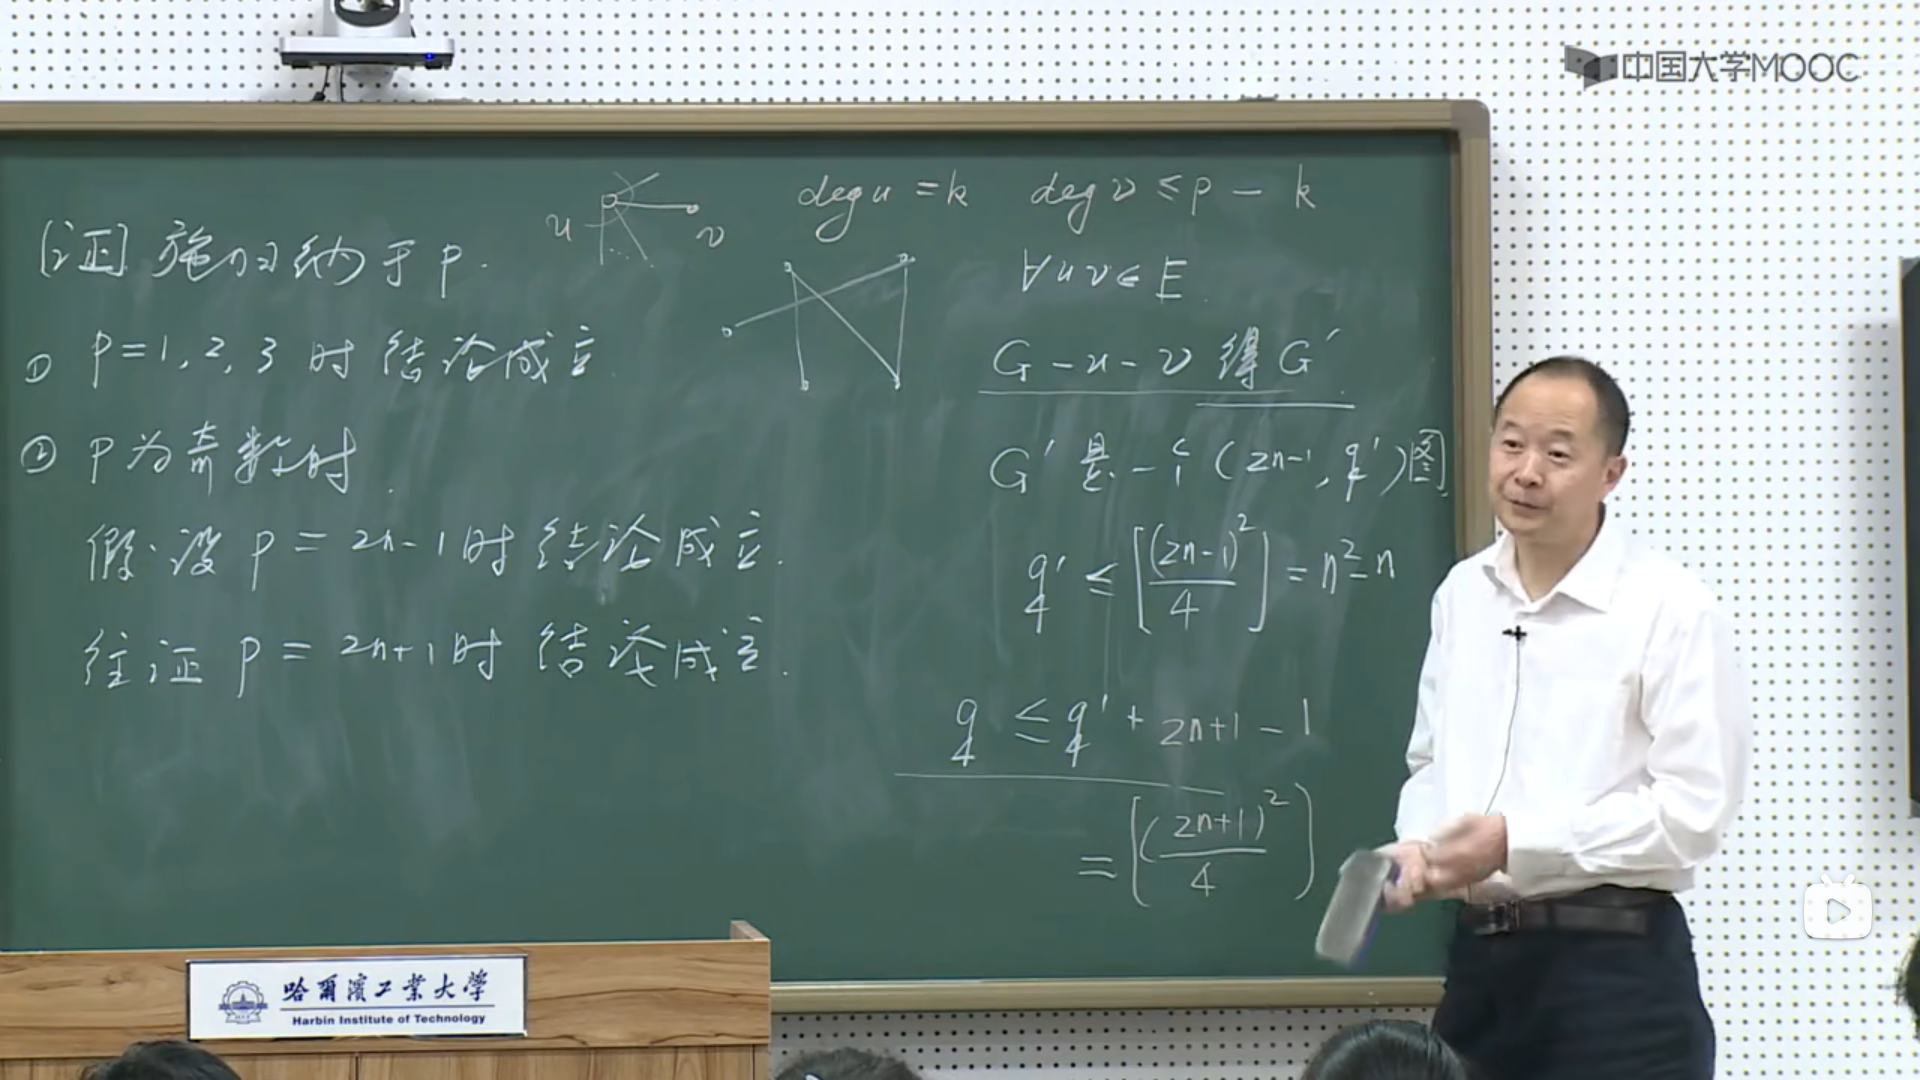 中国大学MOOC
u
v
deg u = k deg v ≤ p - k
∀uv∈E
[证] 施归纳于 p.
① p=1,2,3 时结论成立
② p为奇数时.
假设 p = 2n-1时结论成立.
往证 p = 2n+1时 结论成立.
G-u-v 得 G'.
G'是一个(2n-1, q')图
q' ≤ [(2n-1)²/4] = n²-n
q ≤ q' + 2n+1-1
= [(2n+1)²/4]
哈爾濱工業大學
Harbin Institute of Technology